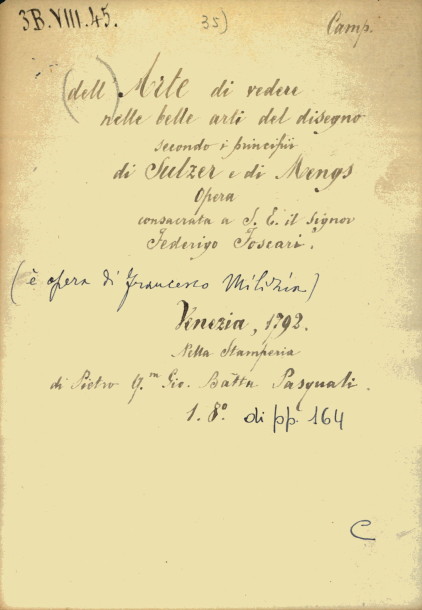 3B.VIII.45. 35) Camp.
(dell') Arte di vedere
nelle belle arti del disegno
secondo i principii
di Sulzer e di Mengs
Opera
consacrata a S. E. il Signor
Federigo Foscari.
(è opera di Francesco Milizia)
Venezia, 1792.
Nella Stamperia
di Pietro q.m Gio. Batta Pasquali.
1. 8.º di pp. 164
C